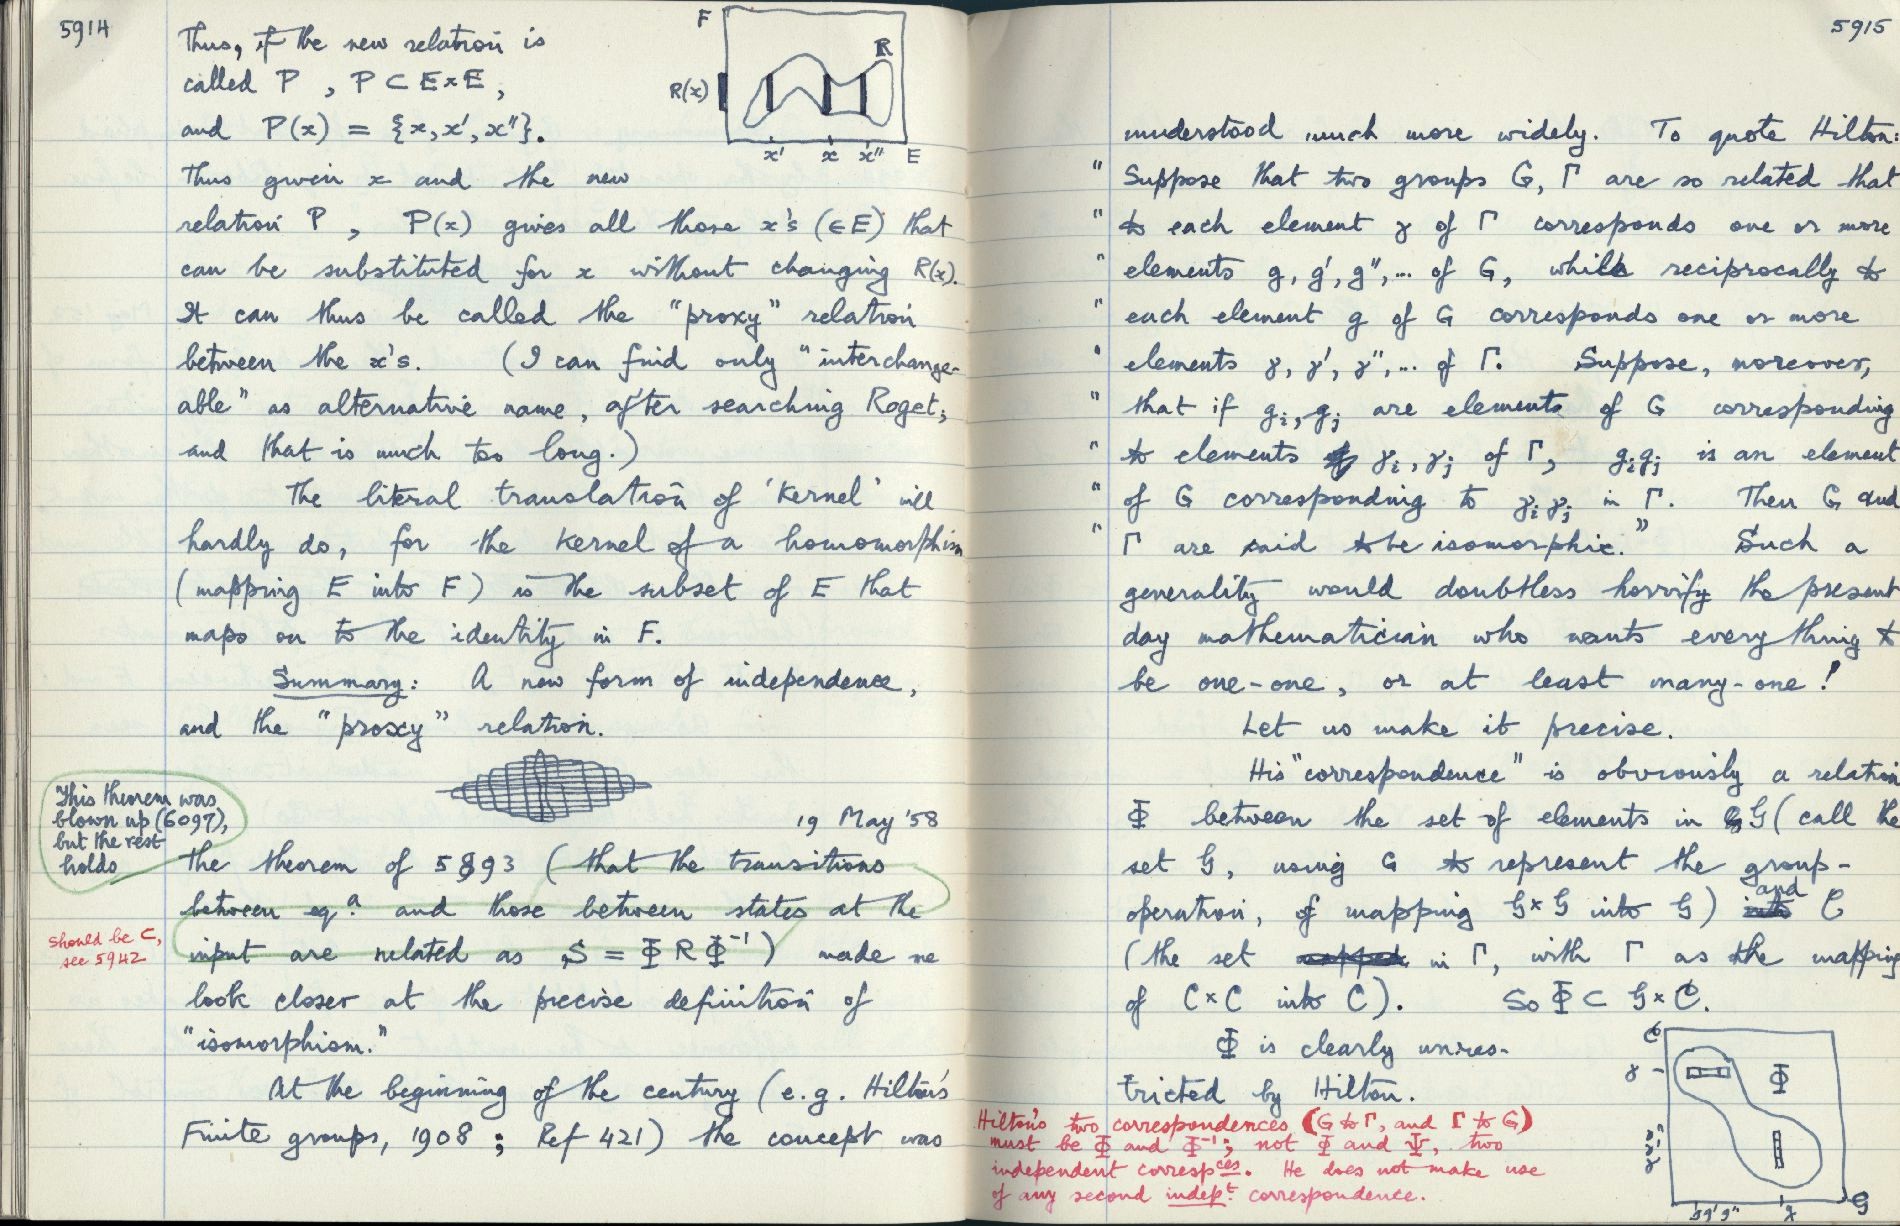 5914
Thus, if the new relation is
called P, P ⊂ E×E,
and P(x) = {x, x', x"}.
F
R
R(x)
x' x x" E
Thus given x and the new
relation P, P(x) gives all those x's (∈E) that
can be substituted for x without changing R(x).
It can thus be called the "proxy" relation
between the x's. (I can find only "interchange-
able" as alternative name, after searching Roget;
and that is much too long.)
The literal translation of 'kernel' will
hardly do, for the kernel of a homomorphism
(mapping E into F) is the subset of E that
maps on to the identity in F.
Summary: A new form of independence,
and the "proxy" relation.
This theorem was
blown up (6097),
but the rest
holds
19 May '58
The theorem of 5893 (that the transitions
between eqᵃ and those between states at the
should be ⊂,
see 5942
input are related as S = Φ R Φ⁻¹) made me
look closer at the precise definition of
"isomorphism."
At the beginning of the century (e.g. Hilton's
Finite groups, 1908; Ref 421) the concept was
5915
understood much more widely. To quote Hilton:
" Suppose that two groups G, Γ are so related that
" to each element γ of Γ corresponds one or more
" elements g, g', g", ... of G, while reciprocally to
" each element g of G corresponds one or more
" elements γ, γ', γ", ... of Γ. Suppose, moreover,
" that if gᵢ, gⱼ are elements of G corresponding
" to elements γᵢ, γⱼ of Γ, gᵢgⱼ is an element
" of G corresponding to γᵢγⱼ in Γ. Then G and
" Γ are said to be isomorphic." Such a
generality would doubtless horrify the present
day mathematician who wants everything to
be one-one, or at least many-one!
Let us make it precise.
His "correspondence" is obviously a relation
Φ between the set of elements in G (call the
set 𝒢, using G to represent the group-
operation, of mapping 𝒢×𝒢 into 𝒢) and C
(the set in Γ, with Γ as the mapping
of C×C into C). So Φ ⊂ 𝒢×C.
Φ is clearly unres-
tricted by Hilton.
Hilton's two correspondences (G to Γ, and Γ to G)
must be Φ and Φ⁻¹; not Φ and Ψ, two
independent correspᶜᵉˢ. He does not make use
of any second indepᵗ correspondence.
C
γ
Φ
γγ'γ"
gg'g" g 𝒢